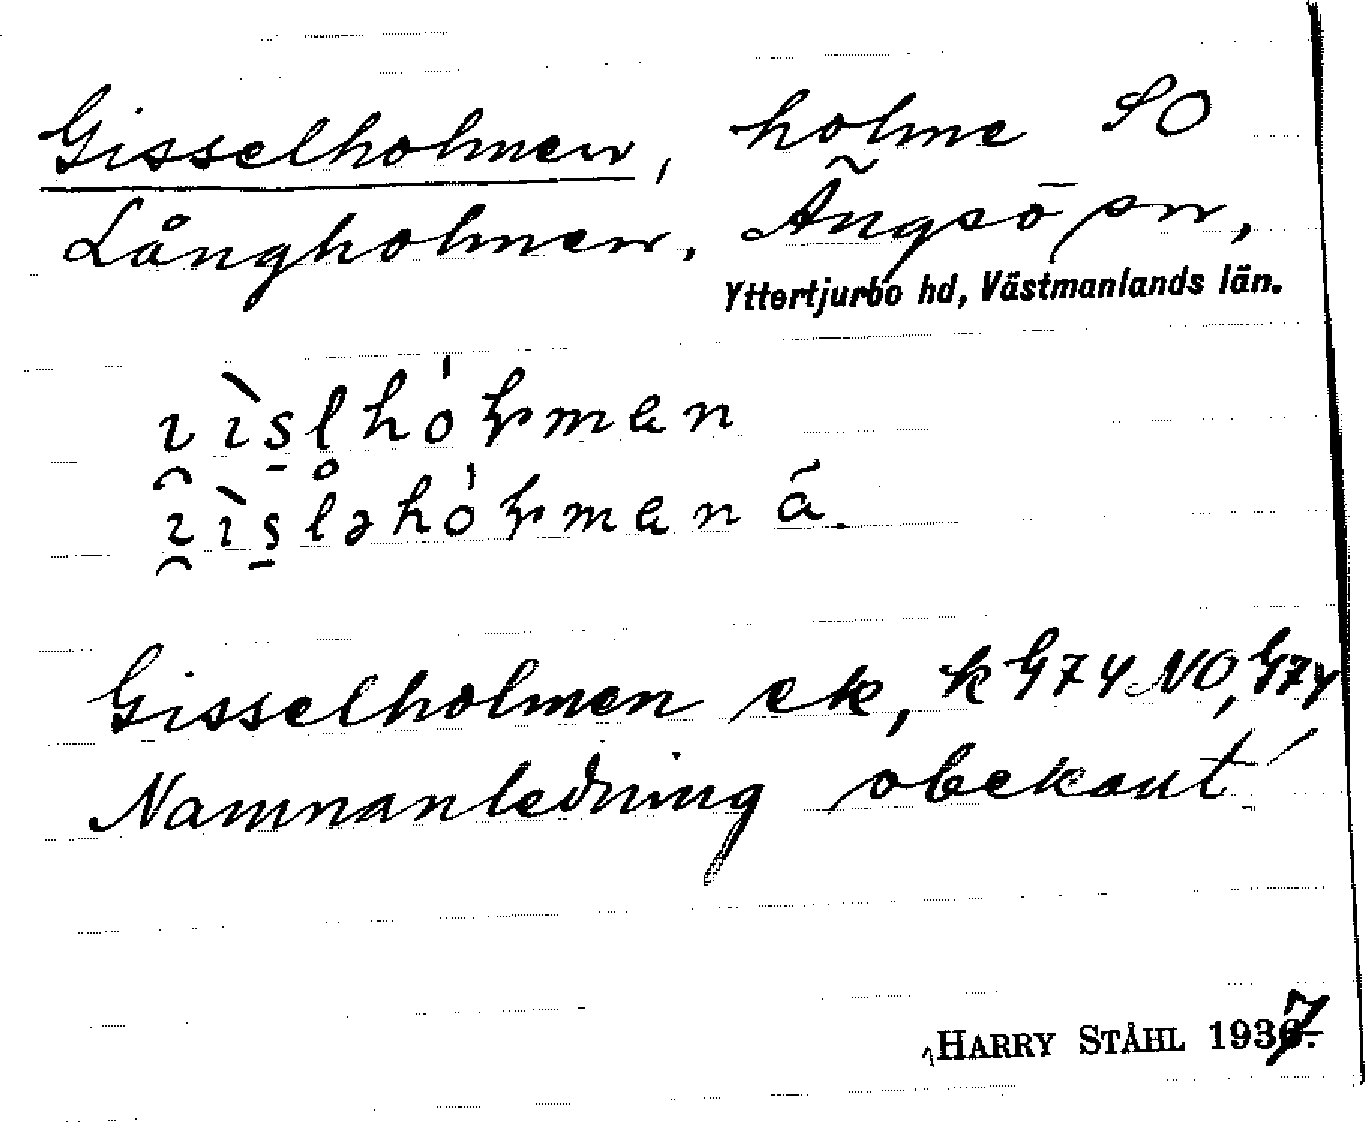 Gisselholmen, holme SO
Långholmen. Ängsö sn,
Yttertjurbo hd, Västmanlands län.
Gisselholmen ek, k G74 NO, G74
Namnanledning obekant
HARRY STÅHL 1937